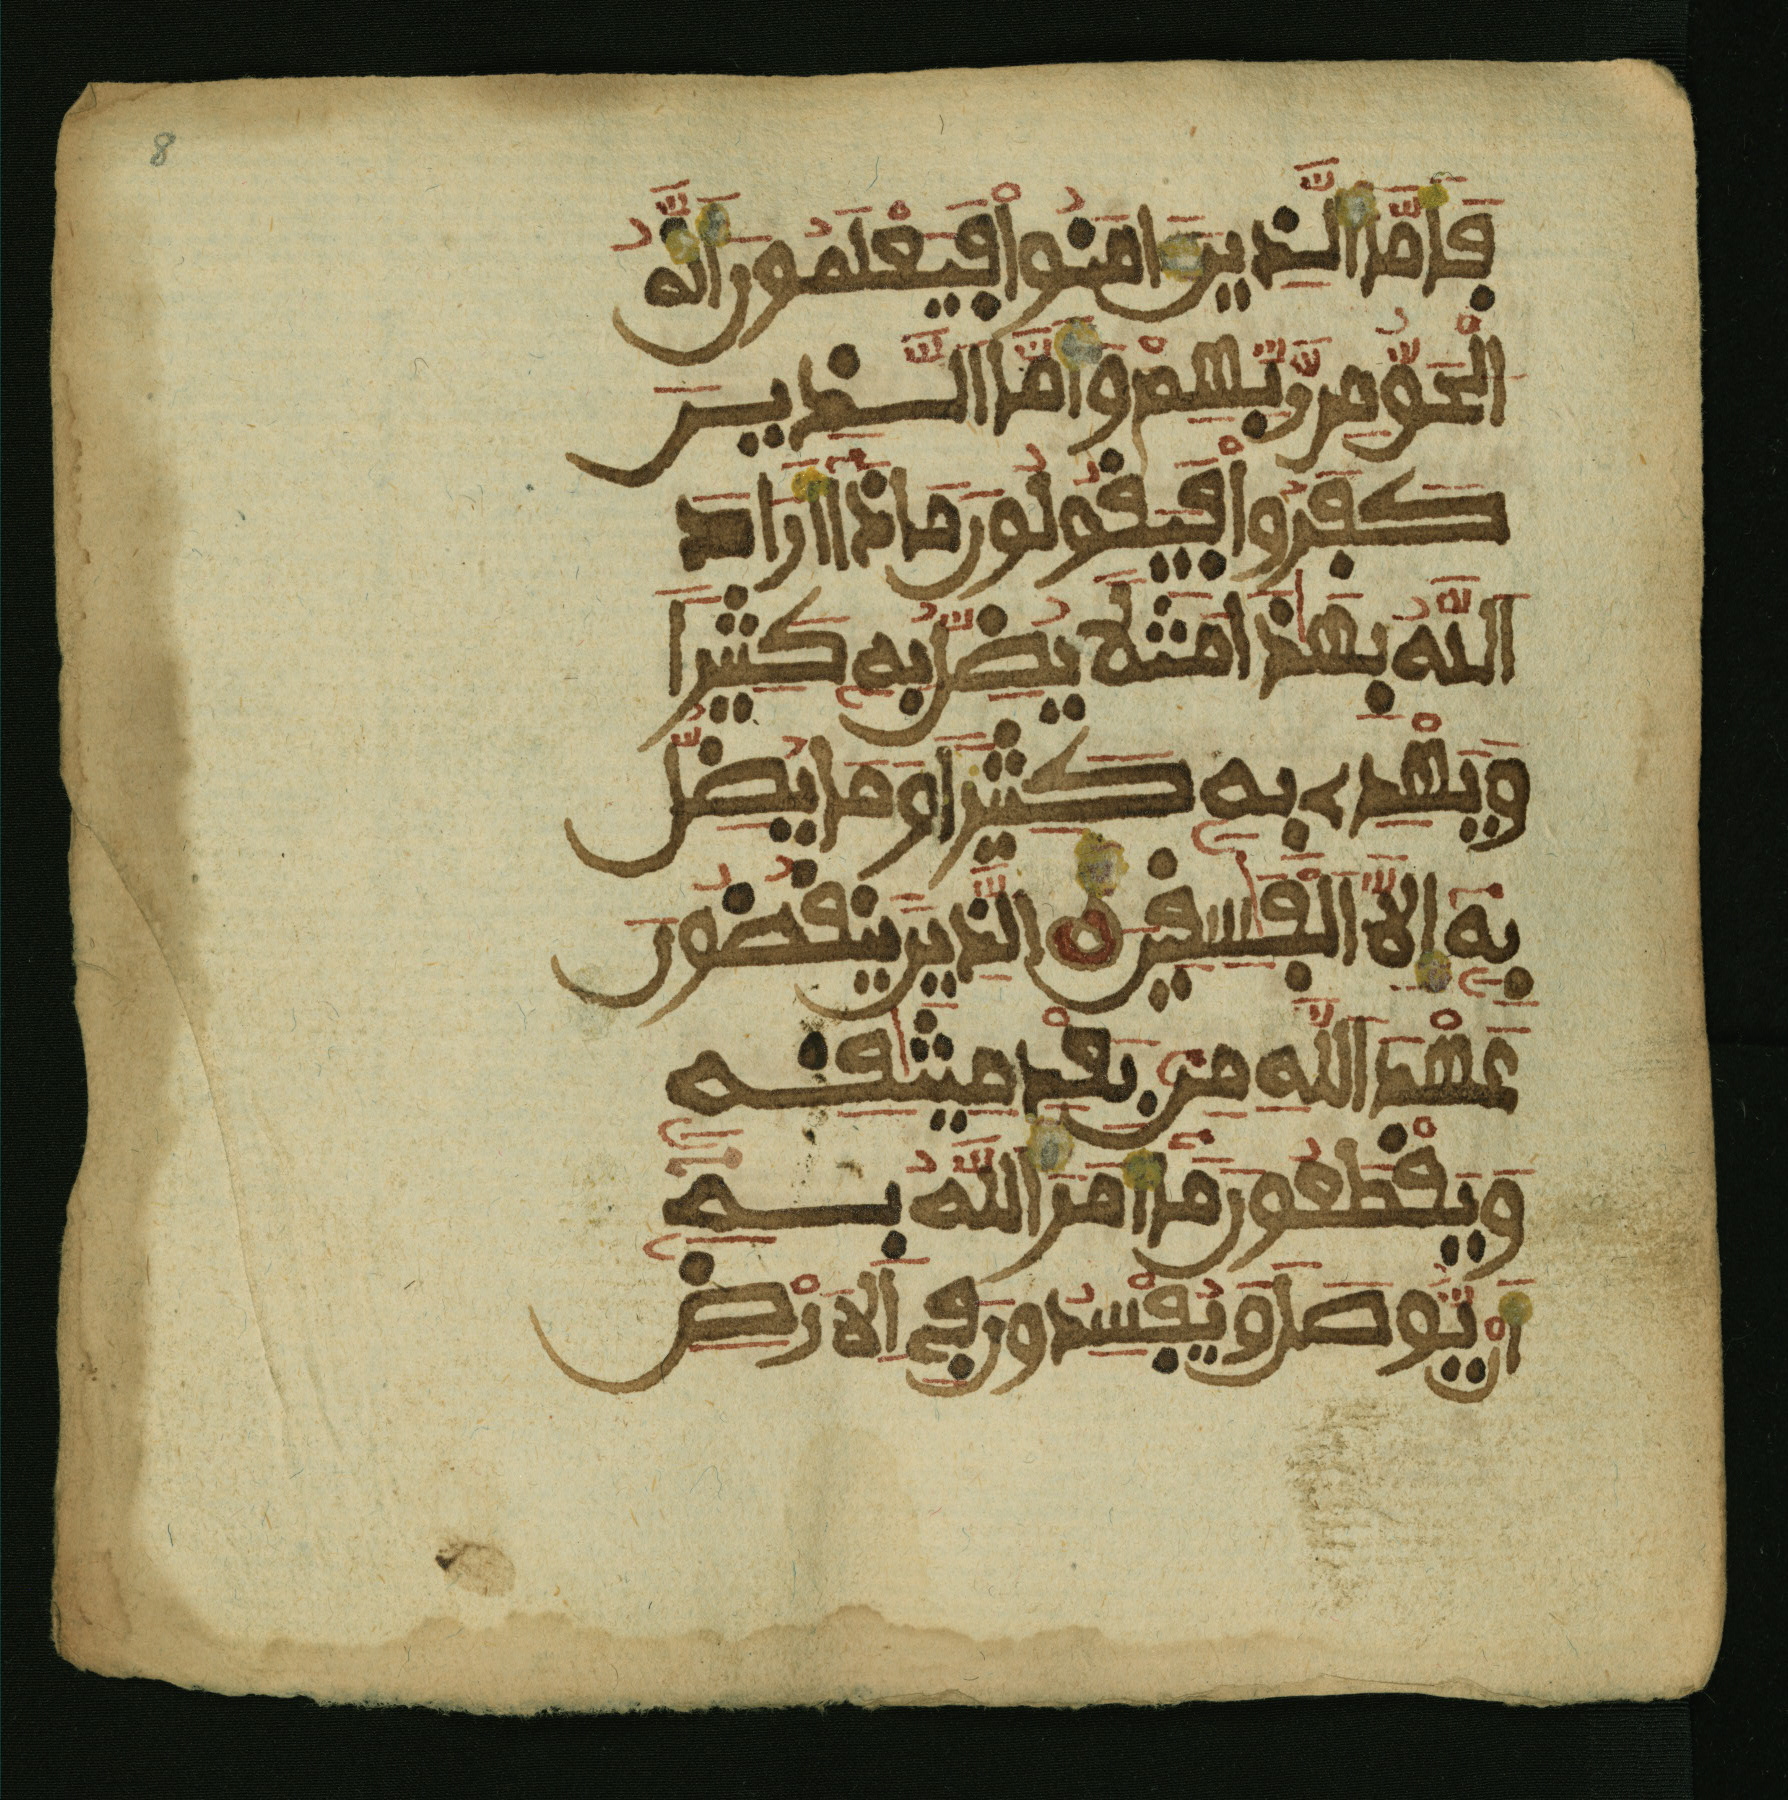 8
فَأَمَّا ٱلَّذِينَ ءَامَنُواْ فَيَعْلَمُونَ أَنَّهُ
ٱلْحَقُّ مِن رَّبِّهِمْ وَأَمَّا ٱلَّذِينَ
كَفَرُواْ فَيَقُولُونَ مَاذَآ أَرَادَ
ٱللَّهُ بِهَٰذَا مَثَلًا يُضِلُّ بِهِۦ كَثِيرًا
وَيَهْدِے بِهِۦ كَثِيرًا وَمَا يُضِلُّ
بِهِۦٓ إِلَّا ٱلْفَٰسِقِينَ ٱلَّذِينَ يَنقُضُونَ
عَهْدَ ٱللَّهِ مِنۢ بَعْدِ مِيثَٰقِهِۦ
وَيَقْطَعُونَ مَآ أَمَرَ ٱللَّهُ بِهِۦٓ
أَنْ يُّوصَلَ وَيُفْسِدُونَ فِے ٱلَارْضِ